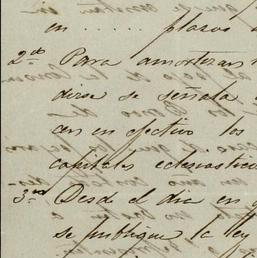 en ..... plazos
2ª Para amortizar
dirse se señala
can en efectivo los
capitales eclesiastico
3ª Desde el dia en q
se publique la ley